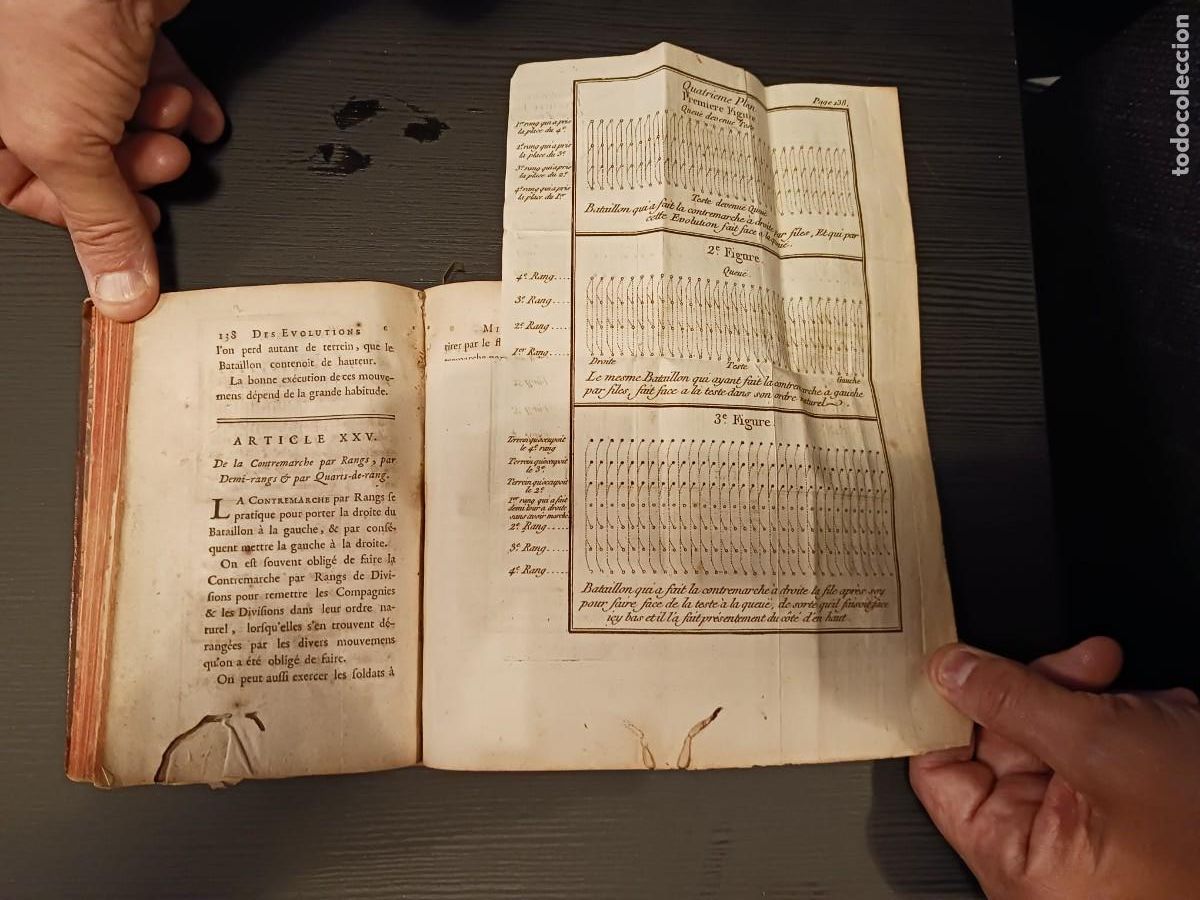 138 DES EVOLUTIONS
l'on perd autant de terrein, que le
Bataillon contenoit de hauteur.
La bonne exécution de ces mouve-
mens dépend de la grande habitude.
ARTICLE XXV.
De la Contremarche par Rangs, par
Demi-rangs & par Quarts-de-rang.
LA CONTREMARCHE par Rangs ſe
pratique pour porter la droite du
Bataillon à la gauche, & par conſé-
quent mettre la gauche à la droite.
On eſt ſouvent obligé de faire la
Contremarche par Rangs de Divi-
ſions pour remettre les Compagnies
& les Diviſions dans leur ordre na-
turel, lorſqu'elles s'en trouvent dé-
rangées par les divers mouvemens
qu'on a été obligé de faire.
On peut auſſi exercer les ſoldats à
MI
tirer par le fl
Page 138.
Quatrieme Plan
Premiere Figure
Queüe devenue Teste
1er rang qui a pris
la place du 4e.
2e rang qui a pris
la place du 3e
3e rang qui a pris
la place du 2e
4e rang qui a pris
la place du 1er
Teste devenue Queüe
Bataillon qui a fait la contremarche a droite par files, Et qui par
cette Evolution fait face a la queüe.
2e Figure.
Queue.
4e Rang....
3e Rang....
2e Rang....
1er Rang....
Droite Teste Gauche
Le mesme Bataillon qui ayant fait la contremarche à gauche
par files, fait face a la teste dans son ordre naturel.
3e Figure.
Terrein qu'occupoit
le 4e rang
Terrein qu'occupoit
le 3e.
Terrein qu'occupoit
le 2e
1er rang qui a fait
demi tour a droite
sans avoir marché
2e Rang....
3e Rang....
4e Rang....
Bataillon qui a fait la contremarche à droite la file apres soy
pour faire face de la teste à la queüe, de sorte qu'il faisoit face
icy bas et il l'a fait présentement du côté d'en haut
todocoleccion